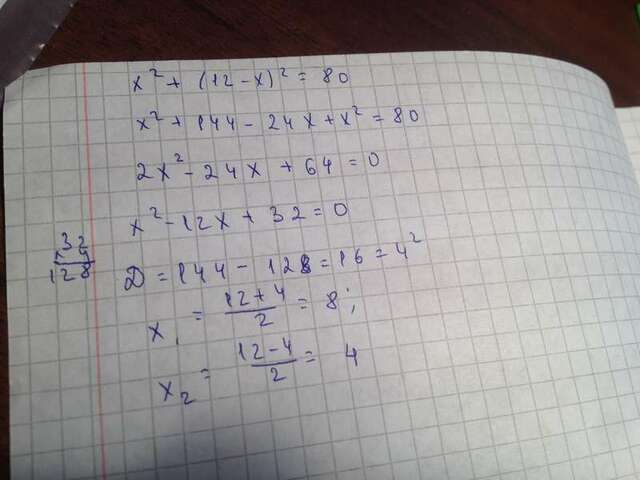 x² + (12-x)² = 80
x² + 144 - 24x + x² = 80
2x² - 24x + 64 = 0
x² - 12x + 32 = 0
D = 144 - 128 = 16 = 4²
x₁ = 12+4/2 = 8;
x₂ = 12-4/2 = 4
32
4
128